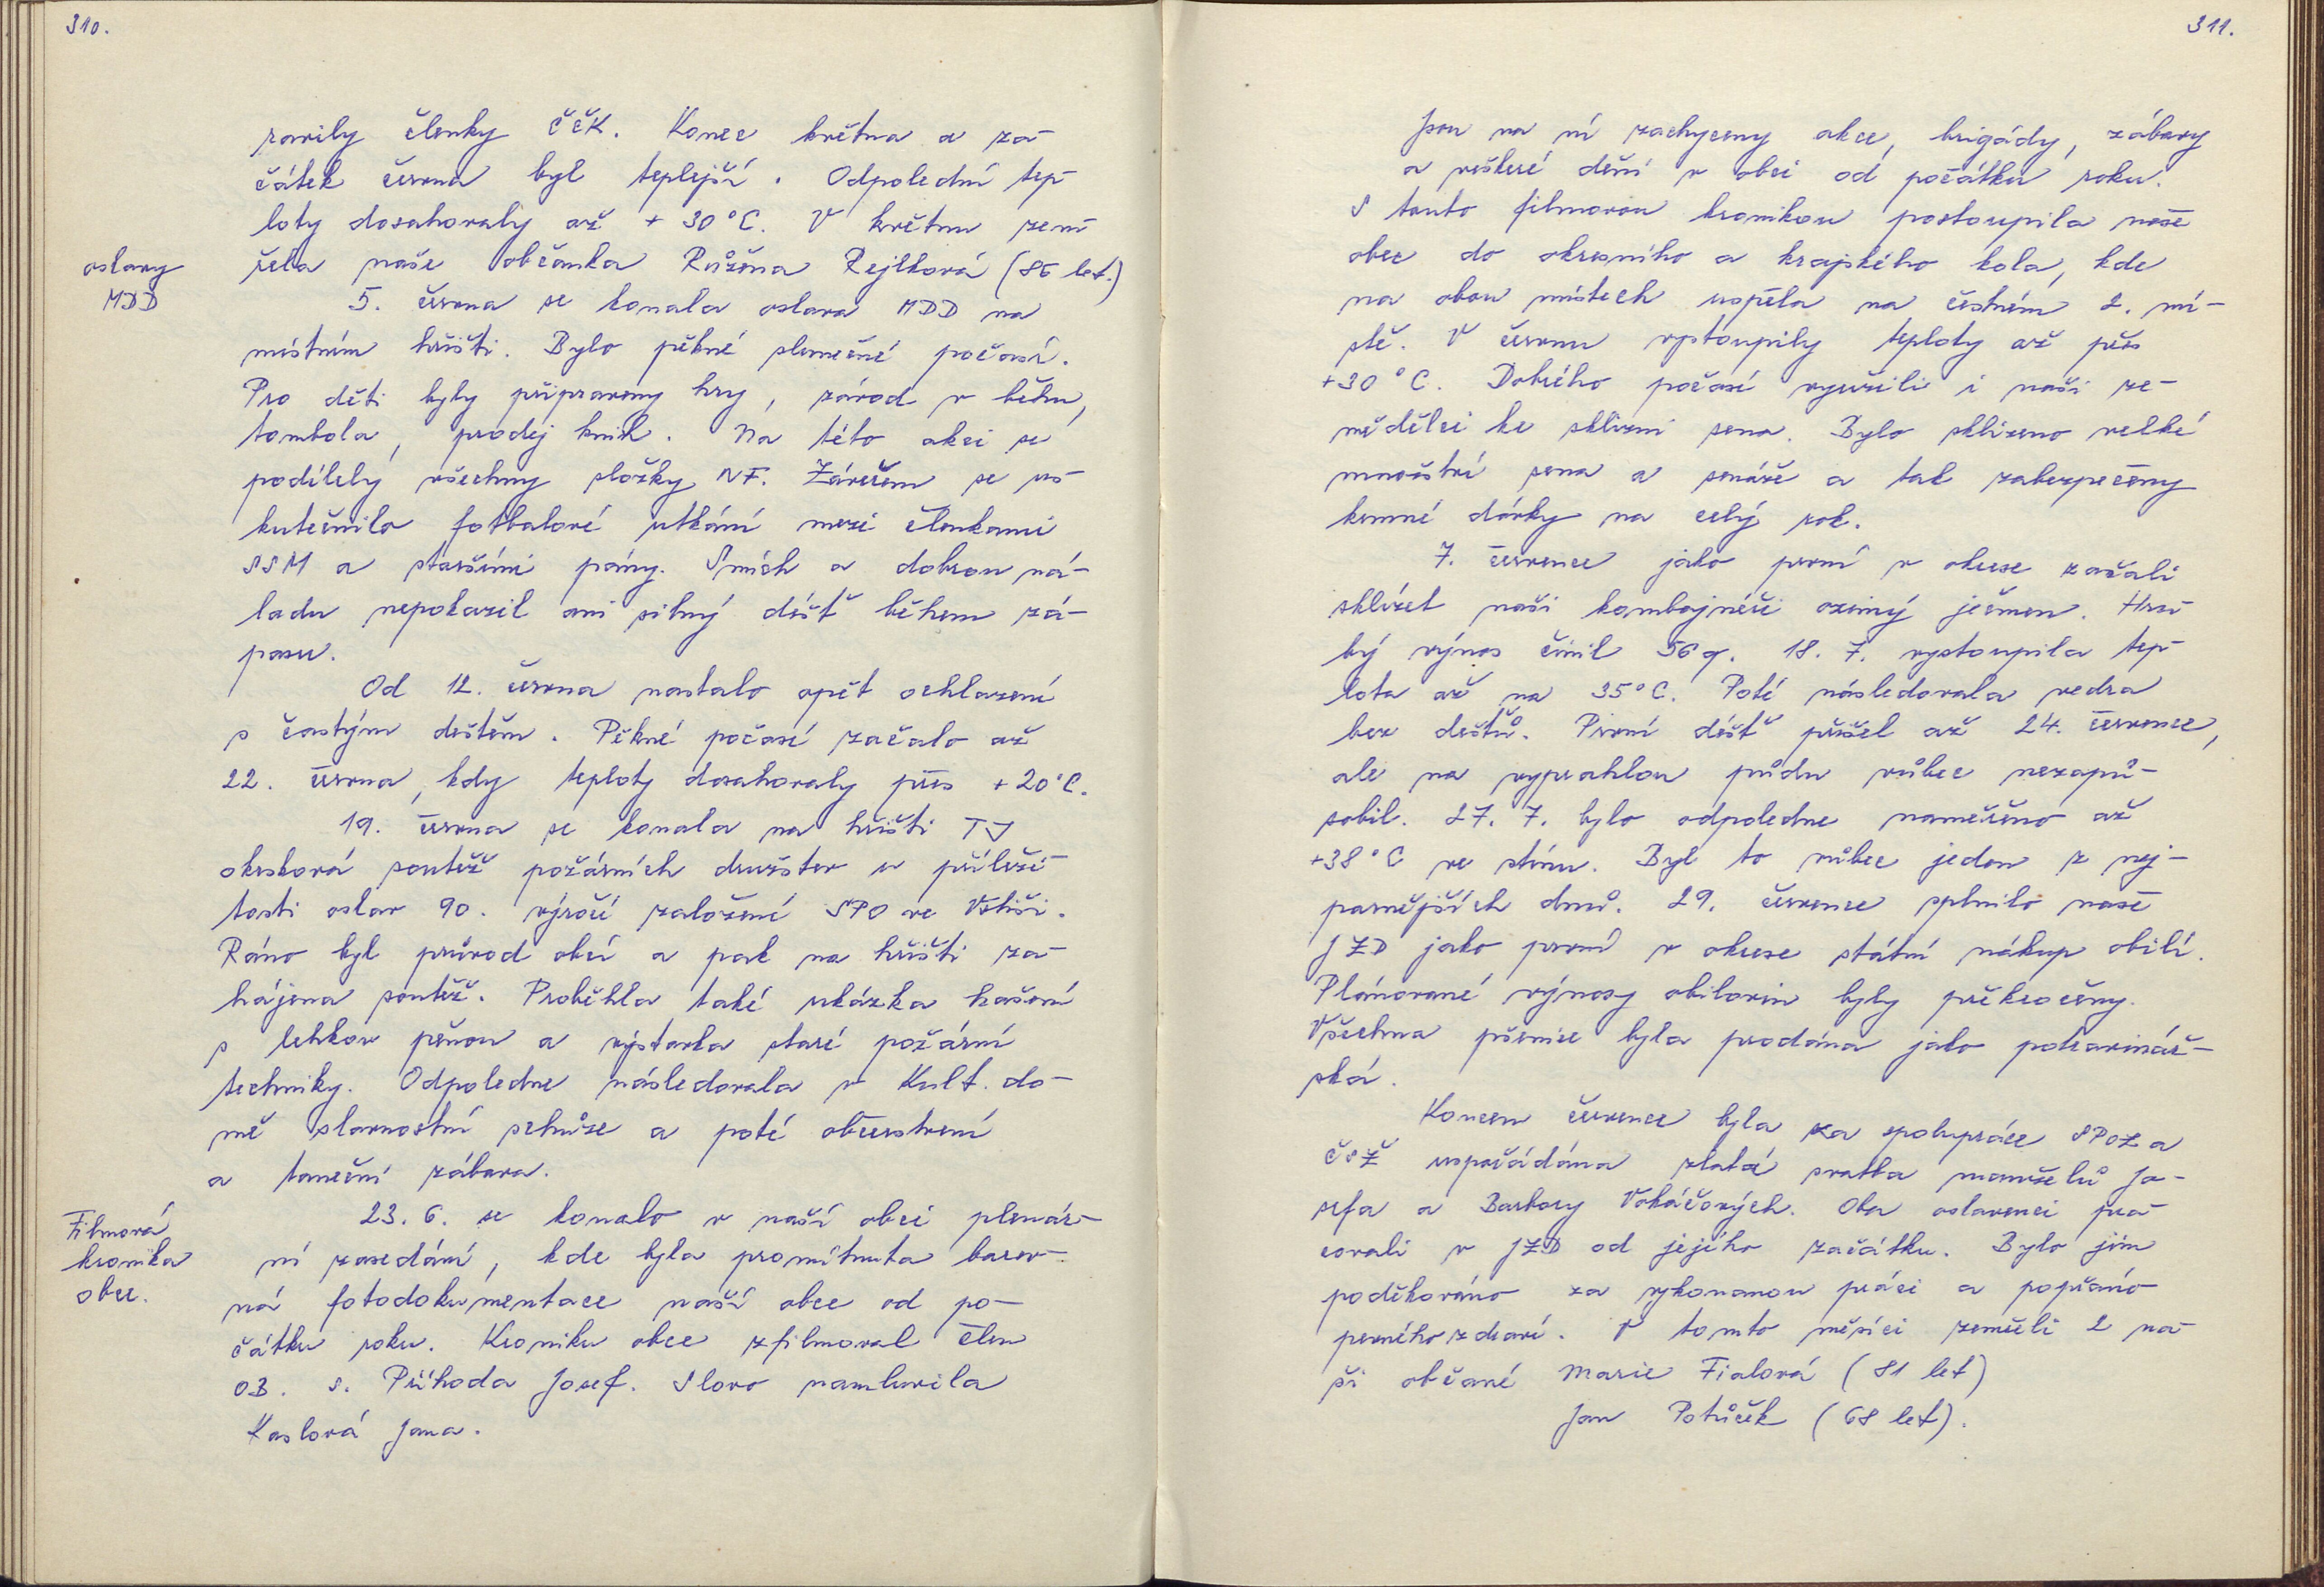 310.
pravily členky ČČK. Konec května a za-
čátek června byl teplejší. Odpolední tep-
loty dosahovaly až + 30°C. V květnu zem-
řela naše občanka Růžena Rejlková (86 let.)
oslavy
MDD
5. června se konala oslava MDD na
místním hřišti. Bylo pěkné slunečné počasí.
Pro děti byly připraveny hry, závod v běhu,
tombola, prodej knih. Na této akci se
podílely všechny složky NF. Závěrem se us-
kutečnilo fotbalové utkání mezi členkami
SSM a staršími pány. Smích a dobrou ná-
ladu nepokazil ani silný déšť během zá-
pasu.
Od 12. června nastalo opět ochlazení
s častým deštěm. Pěkné počasí začalo až
22. června, kdy teploty dosahovaly přes +20°C.
19. června se konala na hřišti TJ
okrsková soutěž požárních družstev u příleži-
tosti oslav 90. výročí založení SPO ve Vstiši.
Ráno byl průvod obcí a pak na hřišti za-
hájena soutěž. Proběhla také ukázka hašení
s lehkou pěnou a výstavka staré požární
techniky. Odpoledne následovala v Kult. do-
mě slavnostní schůze a poté občerstvení
a taneční zábava.
Filmová
kronika
obce.
23. 6. se konalo v naší obci plenár-
ní zasedání, kde byla promítnuta barev-
ná fotodokumentace naší obce od po-
čátku roku. Kroniku obce zfilmoval člen
OB. s. Příhoda Josef. Slovo namluvila
Kaslová Jana.
311.
Jsou na ní zachyceny akce, brigády, zábavy
a veškeré dění v obci od počátku roku.
S touto filmovou kronikou postoupila naše
obec do okresního a krajského kola, kde
na obou místech uspěla na čestném 2. mí-
stě. V červnu vystoupily teploty až přes
+30°C. Dobrého počasí využili i naši ze-
mědělci ke sklizni sena. Bylo sklizeno velké
množství sena a senáže a tak zabezpečeny
krmné dávky na celý rok.
7. července jako první v okrese začali
sklízet naši kombajnéři ozimý ječmen. Hru-
bý výnos činil 56 q. 18. 7. vystoupila tep-
lota až na 35°C. Poté následovala vedra
bez dešťů. První déšť přišel až 24. července,
ale na vyprahlou půdu vůbec nezapů-
sobil. 27. 7. bylo odpoledne naměřeno až
+38°C ve stínu. Byl to vůbec jeden z nej-
parnějších dnů. 29. července splnilo naše
JZD jako první v okrese státní nákup obilí.
Plánované výnosy obilovin byly překročeny.
Všechna pšenice byla prodána jako potravinář-
ská.
Koncem července byla za spolupráce SPOZ a
ČSŽ uspořádána zlatá svatba manželů Jo-
sefa a Barbory Vokáčových. Oba oslavenci pra-
covali v JZD od jejího začátku. Bylo jim
poděkováno za vykonanou práci a popřáno
pevného zdraví. V tomto měsíci zemřeli 2 na-
ši občané Marie Fialová (81 let)
Jan Potůček (68 let).